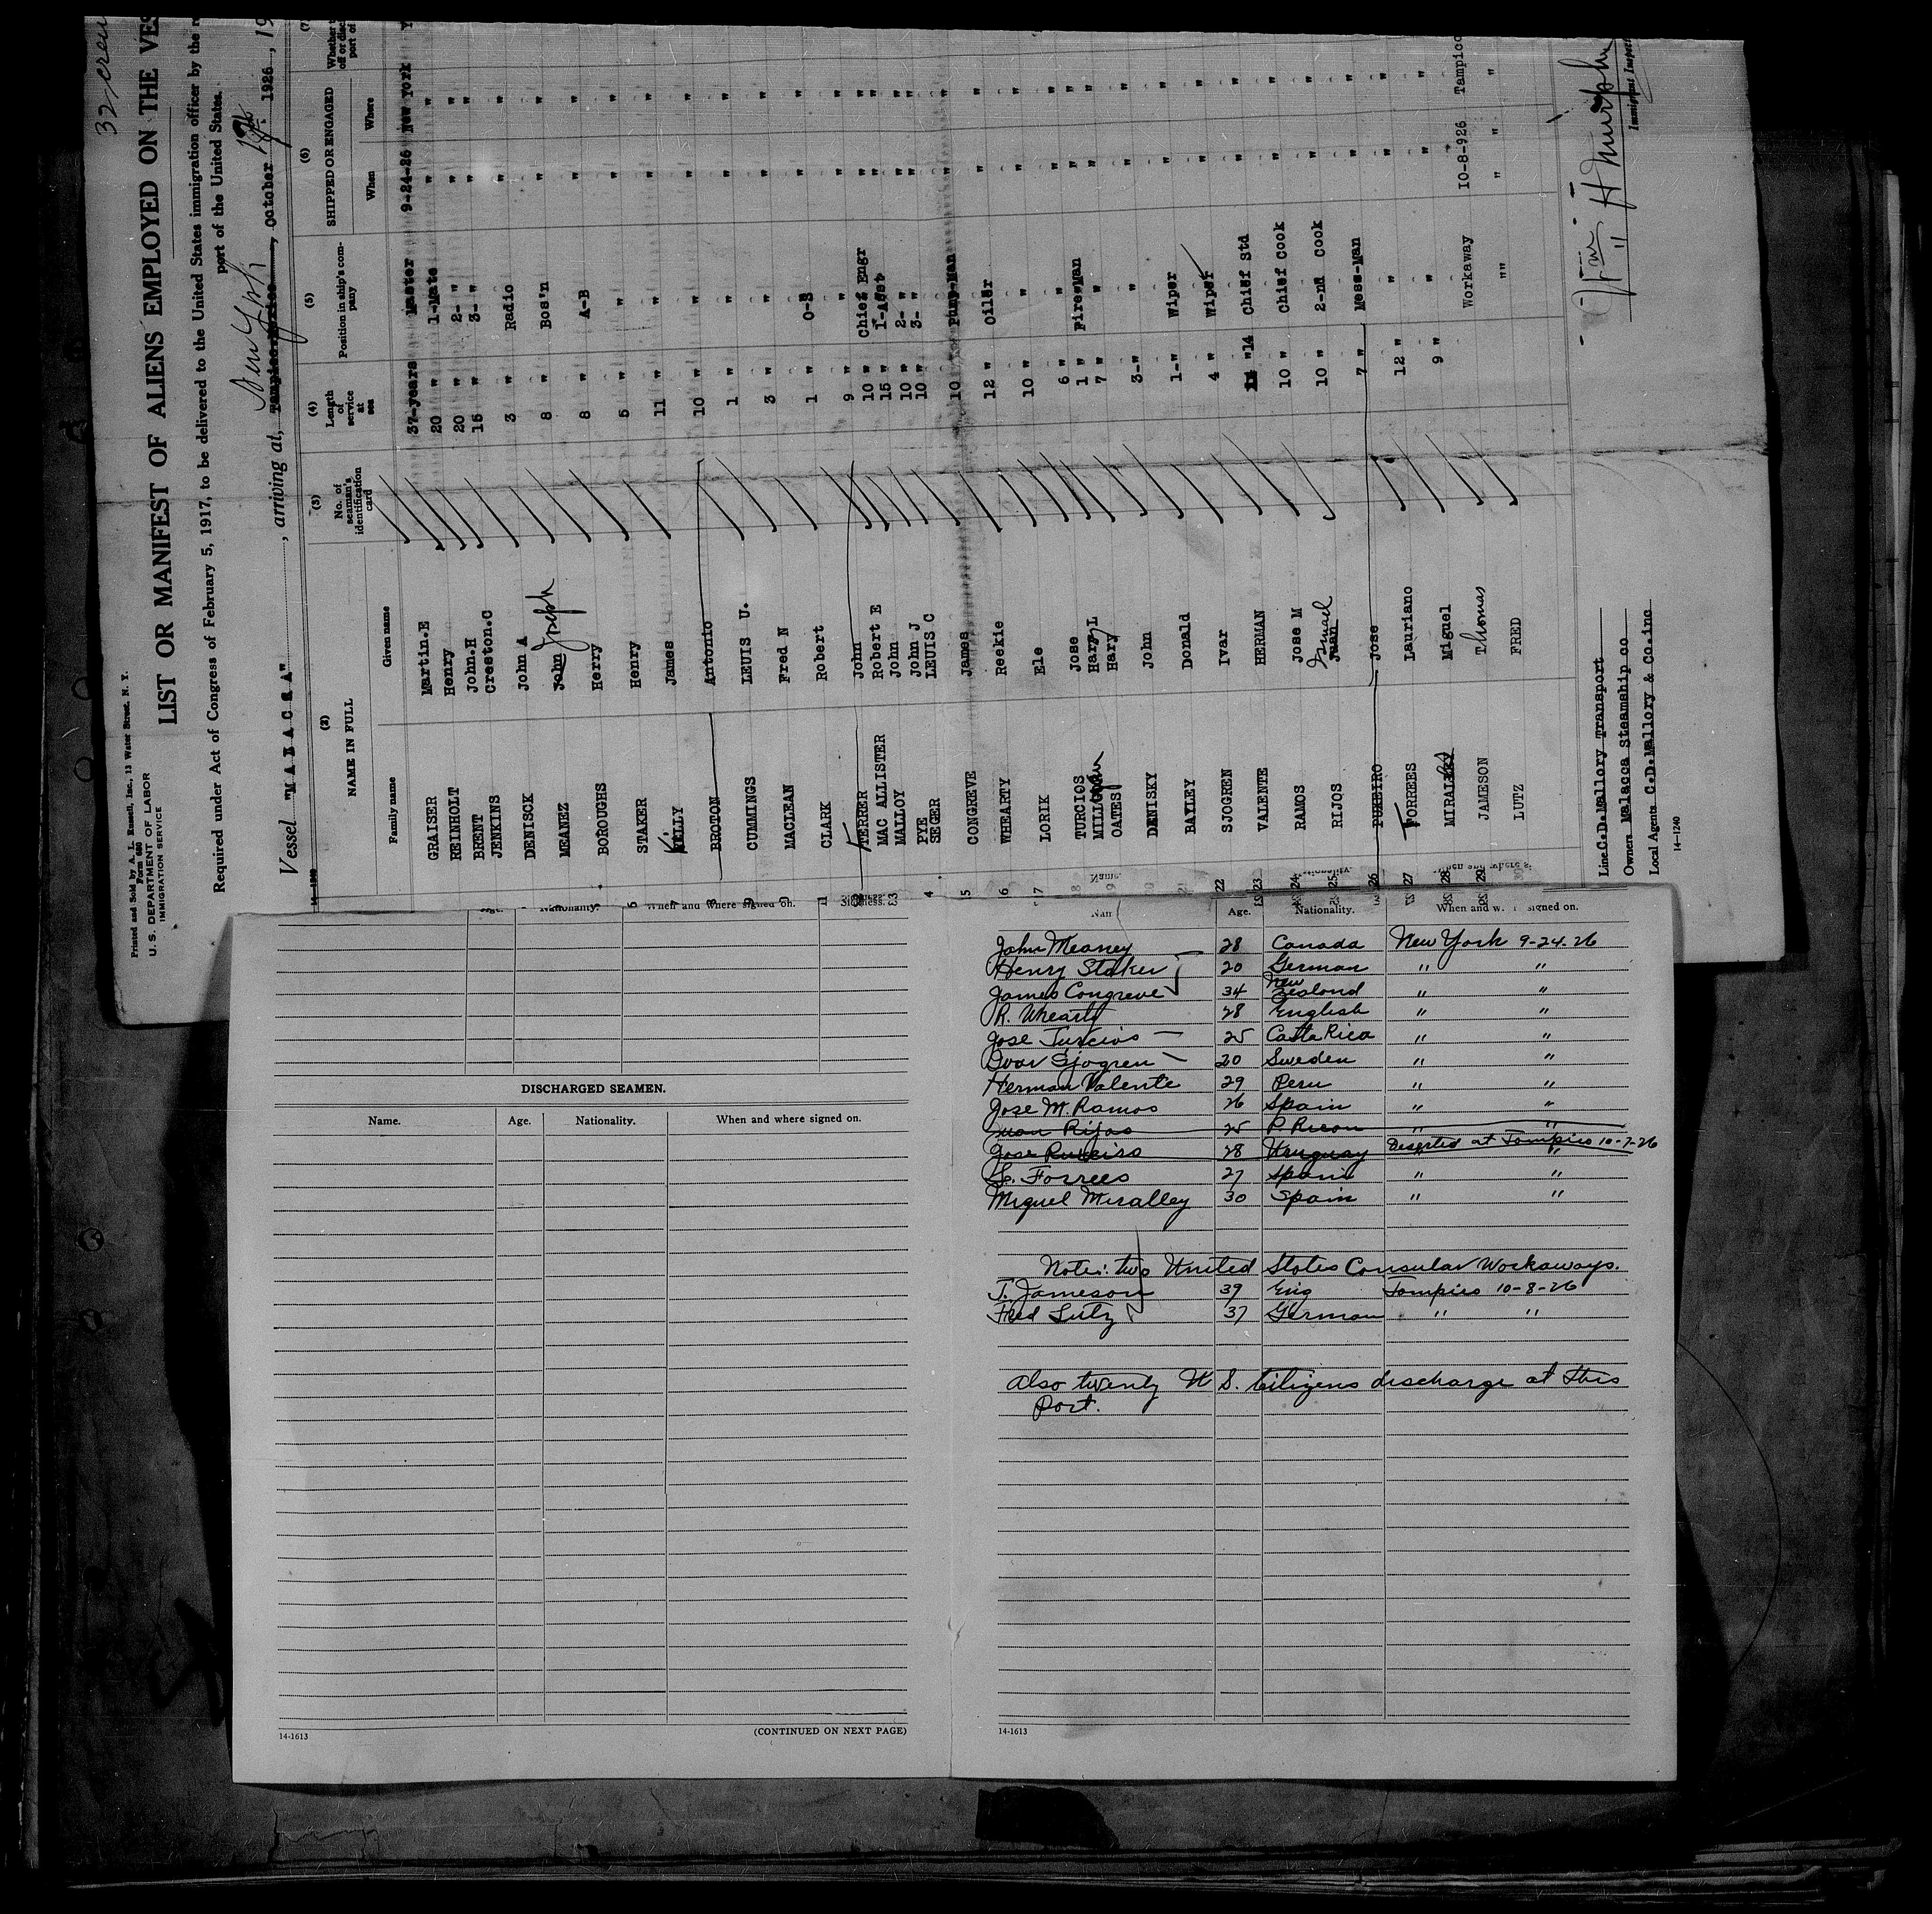 32 crew
Printed and Sold by A. L. Russell, Inc., 13 Water Street, N. Y.
Form 680
U. S. DEPARTMENT OF LABOR
IMMIGRATION SERVICE
LIST OR MANIFEST OF ALIENS EMPLOYED ON THE VES
Required under Act of Congress of February 5, 1917, to be delivered to the United States immigration officer by the r
port of the United States.
Vessel "MALACCA", arriving at, New York Tampico Mexico, October 19th 1926, 19
14-1240
(2) NAME IN FULL
Family name Given name
(3) No. of seaman's identification card
(4) Length of service at sea
(5) Position in ship's company
(6) SHIPPED OR ENGAGED
When Where
(7)
GRAISER Martin.E 37-years Master 9-24-26 New York
REINHOLT Henry 20 " 1-Mate " "
BRENT John.H 20 " 2- " " "
JENKINS Creston.C 15 " 3- " " "
DENISCK John A 3 " Radio " "
MEANEZ John Joseph 8 " Bos'n " "
BOROUGHS Herry 8 " A-B " "
STAKER Henry 5 " " " "
KELLY James 11 " " " "
BROTON Antonio 10 " " " "
CUMMINGS LEUIS U. 1 " " " "
MACLEAN Fred N 3 " " " "
CLARK Robert 1 " O-S " "
FERRER John 9 " " " "
MAC ALLISTER Robert E 10 " Chief Engr " "
MALLOY John 15 " 1-Asst " "
PYE John J 10 " 2- " " "
SEGER LEUIS C 10 " 3- " " "
CONGREVE James 10 " Pump-Man " "
WHEARTY Reekie 12 " Oiler " "
LORIK Ele 10 " " " "
TURCIOS Jose 6 " Fire-Man " "
Harry L 1 " " " "
OATES Hary 7 " " "
DENISKY John 3-" " "
BAILEY Donald 1-" Wiper " "
SJOGREN Ivar 4 " Wiper " "
VALENTE HERMAN 14 Chief Std " "
RAMOS Jose M 10 " Chief Cook " "
RIJOS Juan Ismael 10 " 2-nd Cook " "
Jose 7 " Mess-Man " "
FORREES Lauriano 12 " " " "
Miguel 9 " " " "
JAMESON Thomas Workaway 10-8-926 Tampico
LUTZ FRED "" " "
Line C.D.Mallory Transport
Owners Malacca Steamship co
Local Agents C.D.Mallory & Co.inc
14-1240
H Murphy
Immigrant Inspect
Age. Nationality. When and where signed on.
DISCHARGED SEAMEN.
Name. Age. Nationality. When and where signed on.
14-1613
(CONTINUED ON NEXT PAGE)
Age. Nationality. When and w signed on.
John Meaney 28 Canada New York 9-24-26
Henry Staker 20 German " "
James Congreve 34 New Zeslond " "
R. Whearty 28 English " "
Jose Turcios 25 Casta Rica " "
Ivar Sjogren 20 Sweden " "
Herman Valente 29 Peru " "
Jose M. Ramos 26 Spain " "
Juan Rijos 25 P. Rican " "
Jose 28 Uruguay Deserted at Tampico 10-7-26
L. Forrees 27 Spain " "
Miguel Miralley 30 Spain " "
Note: two United States Consular Workaways.
T. Jameson 39 Eng Tampico 10-8-26
Fred Lutz 37 German " "
Also twenty U S. Citizens discharge at this
Port.
14-1613